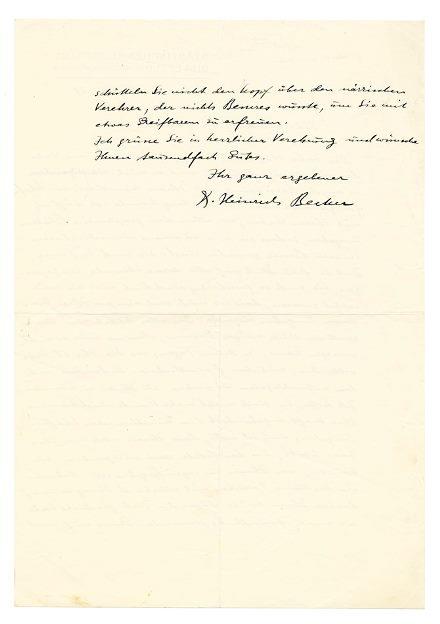 schütteln Sie nicht den Kopf über den närrischen
Verehrer, der nichts Besseres wüsste, um Sie mit
etwas Greifbarem zu erfreuen.
Ich grüße Sie in herzlicher Verehrung und wünsche
Ihnen tausendfach Gutes.
Ihr ganz ergebener
K. Heinrich Becker